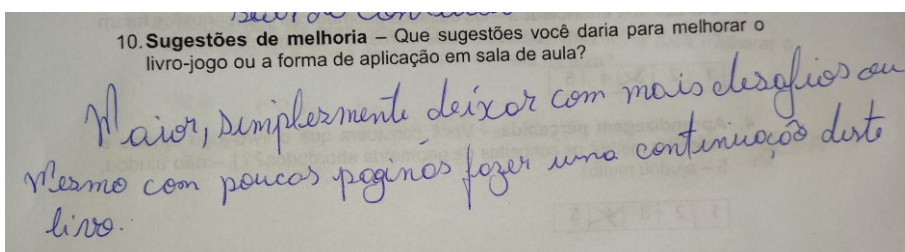 10. Sugestões de melhoria – Que sugestões você daria para melhorar o
livro-jogo ou a forma de aplicação em sala de aula?
Maior, simplesmente deixar com mais desafios ou
mesmo com poucas paginas fazer uma continuação deste
livro.